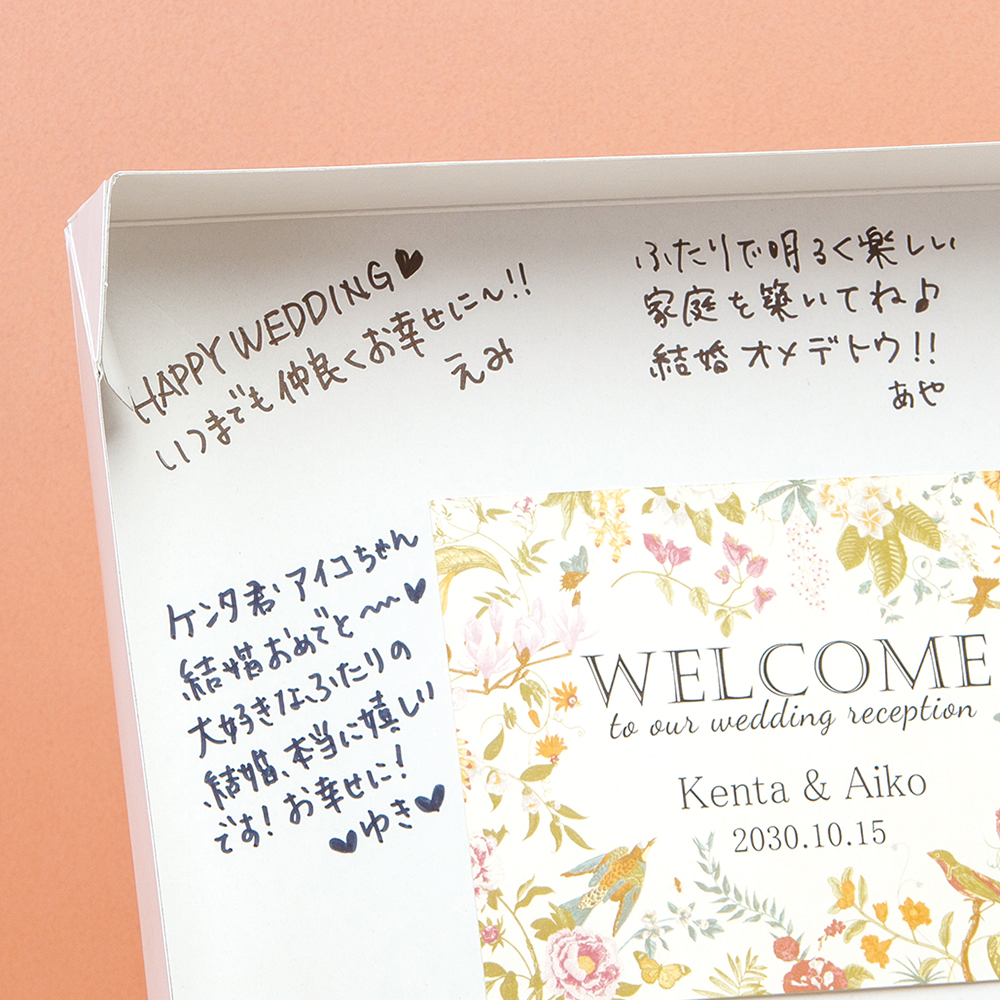 HAPPY WEDDING♥
いつまでも仲良くお幸せに〜!!
えみ
ふたりで明るく楽しい
家庭を築いてね♪
結婚オメデトウ!!
あや
ケンタ君・アイコちゃん
結婚おめでと〜〜♥
大好きな、ふたりの
結婚、本当に嬉しい
です!お幸せに!
♥ゆき♥
WELCOME
to our wedding reception
Kenta & Aiko
2030.10.15